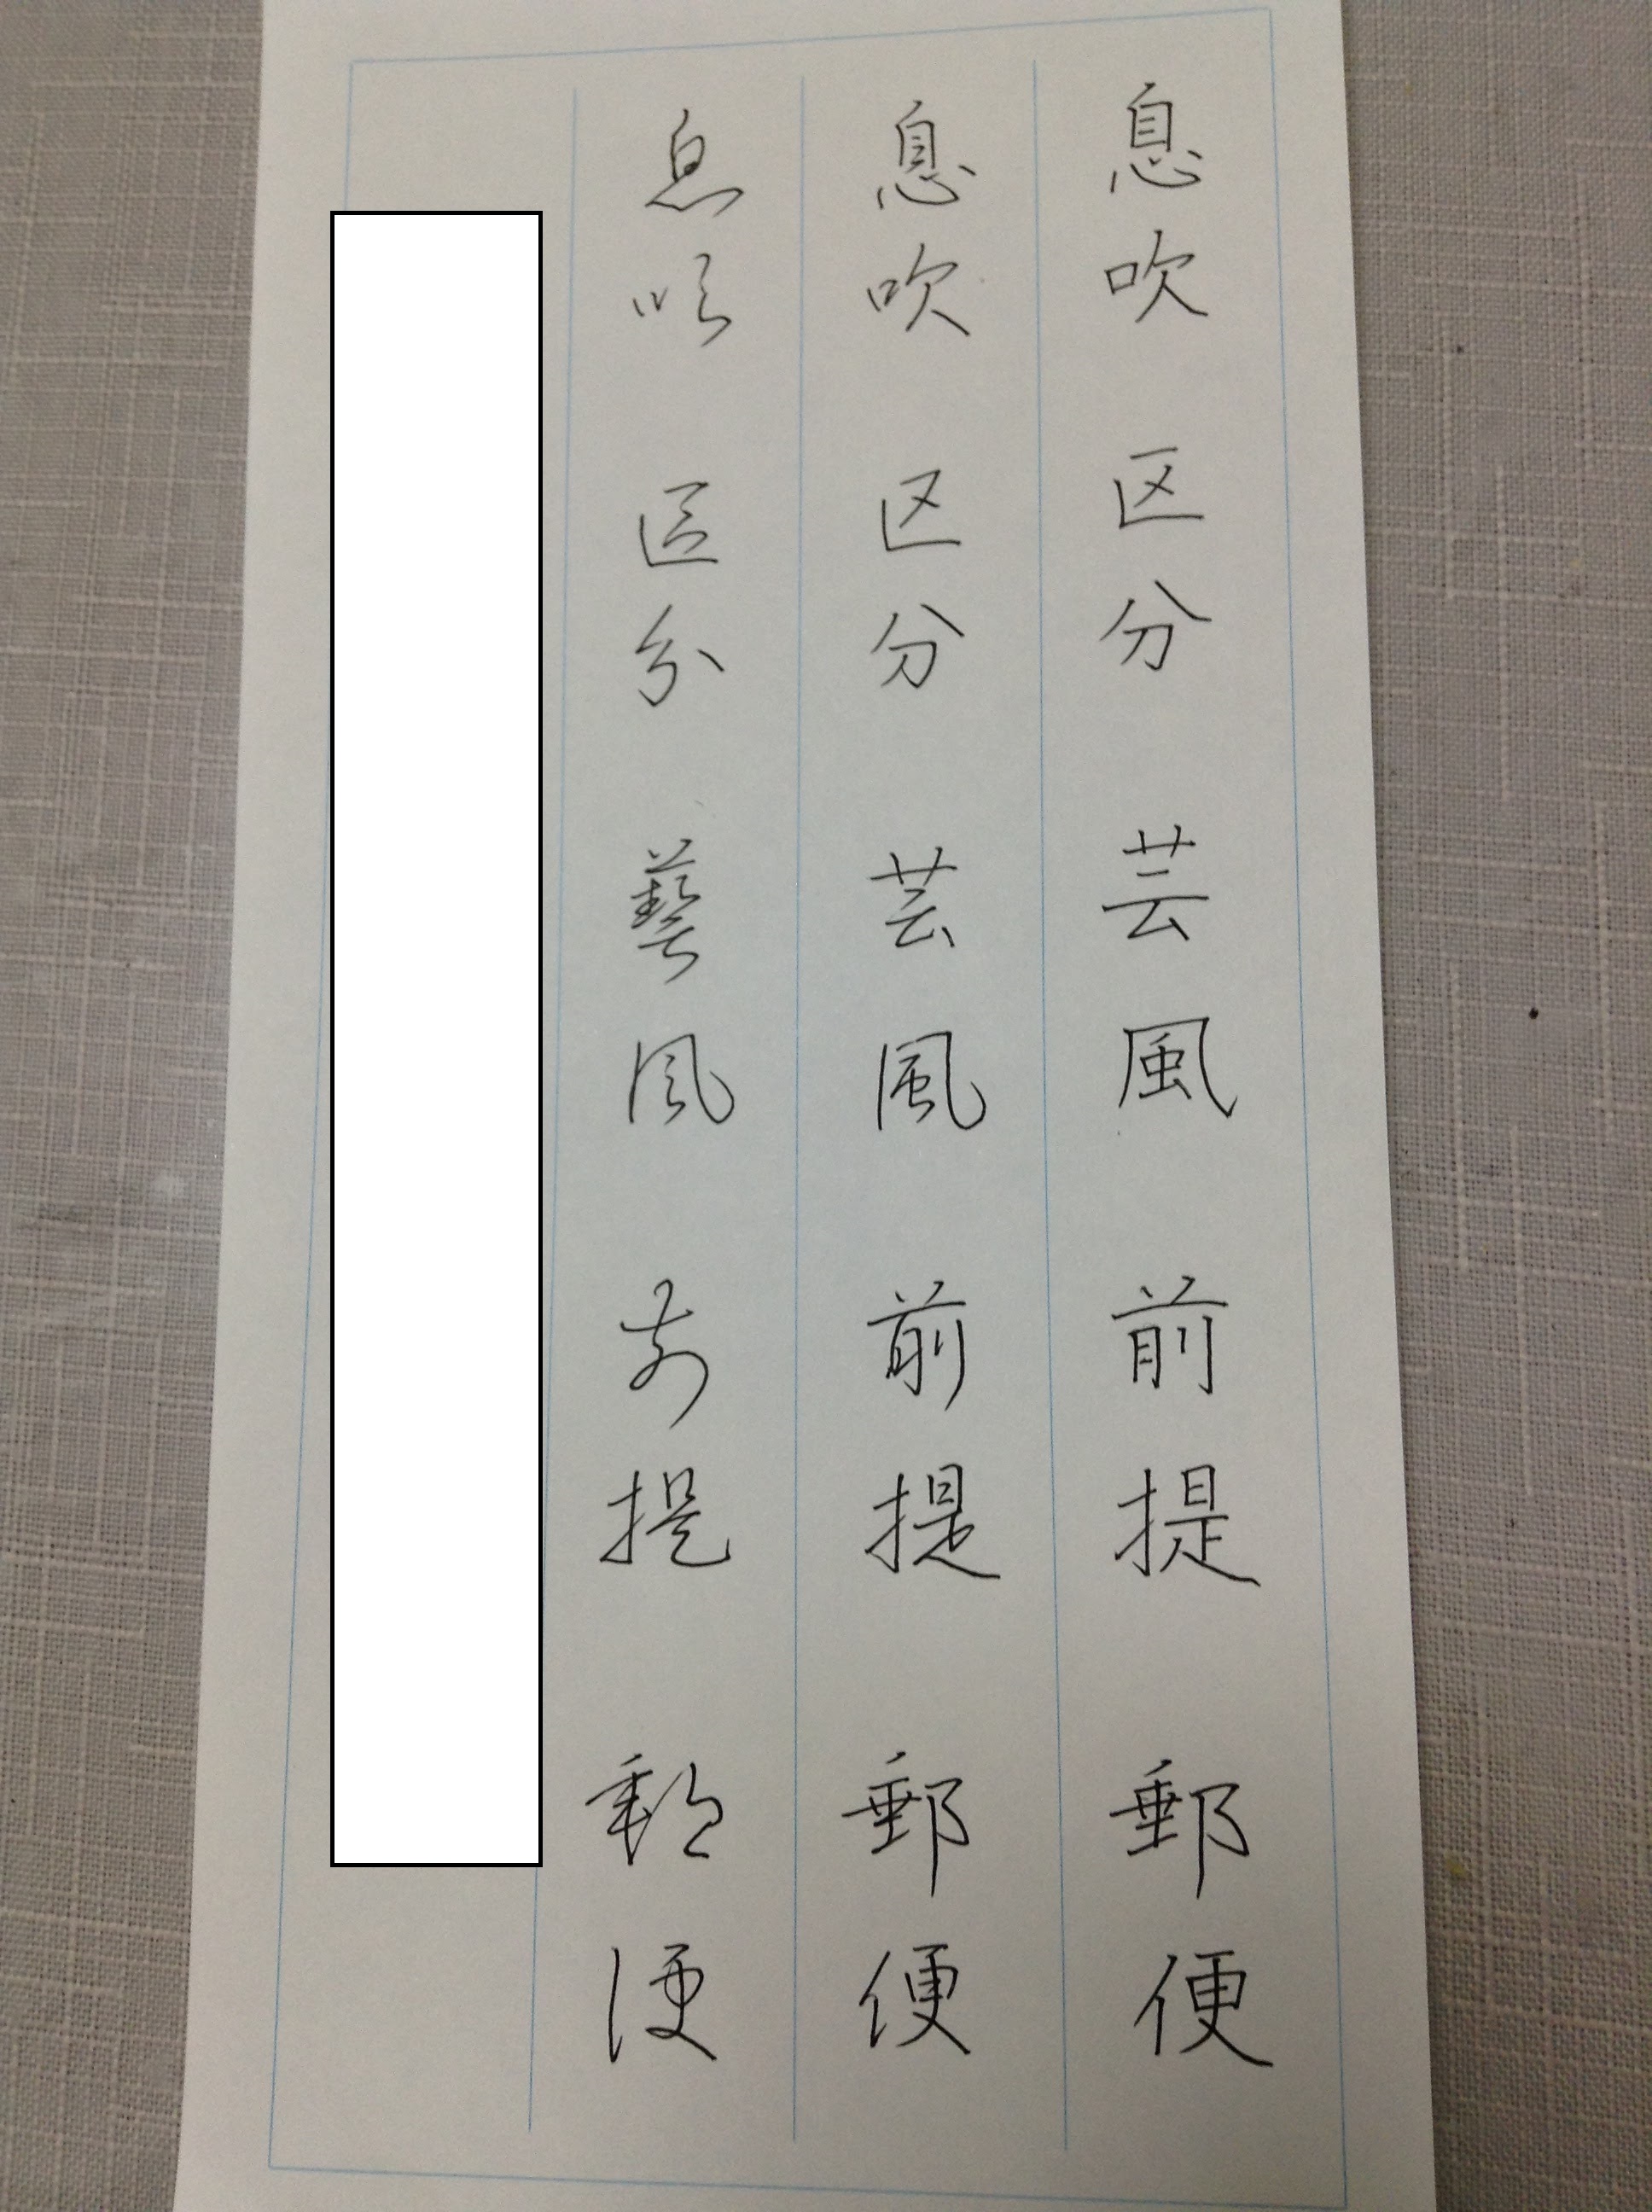 息吹 区分 芸風 前提 郵便
息吹 区分 芸風 前提 郵便
息吹 區分 藝風 前提 郵便